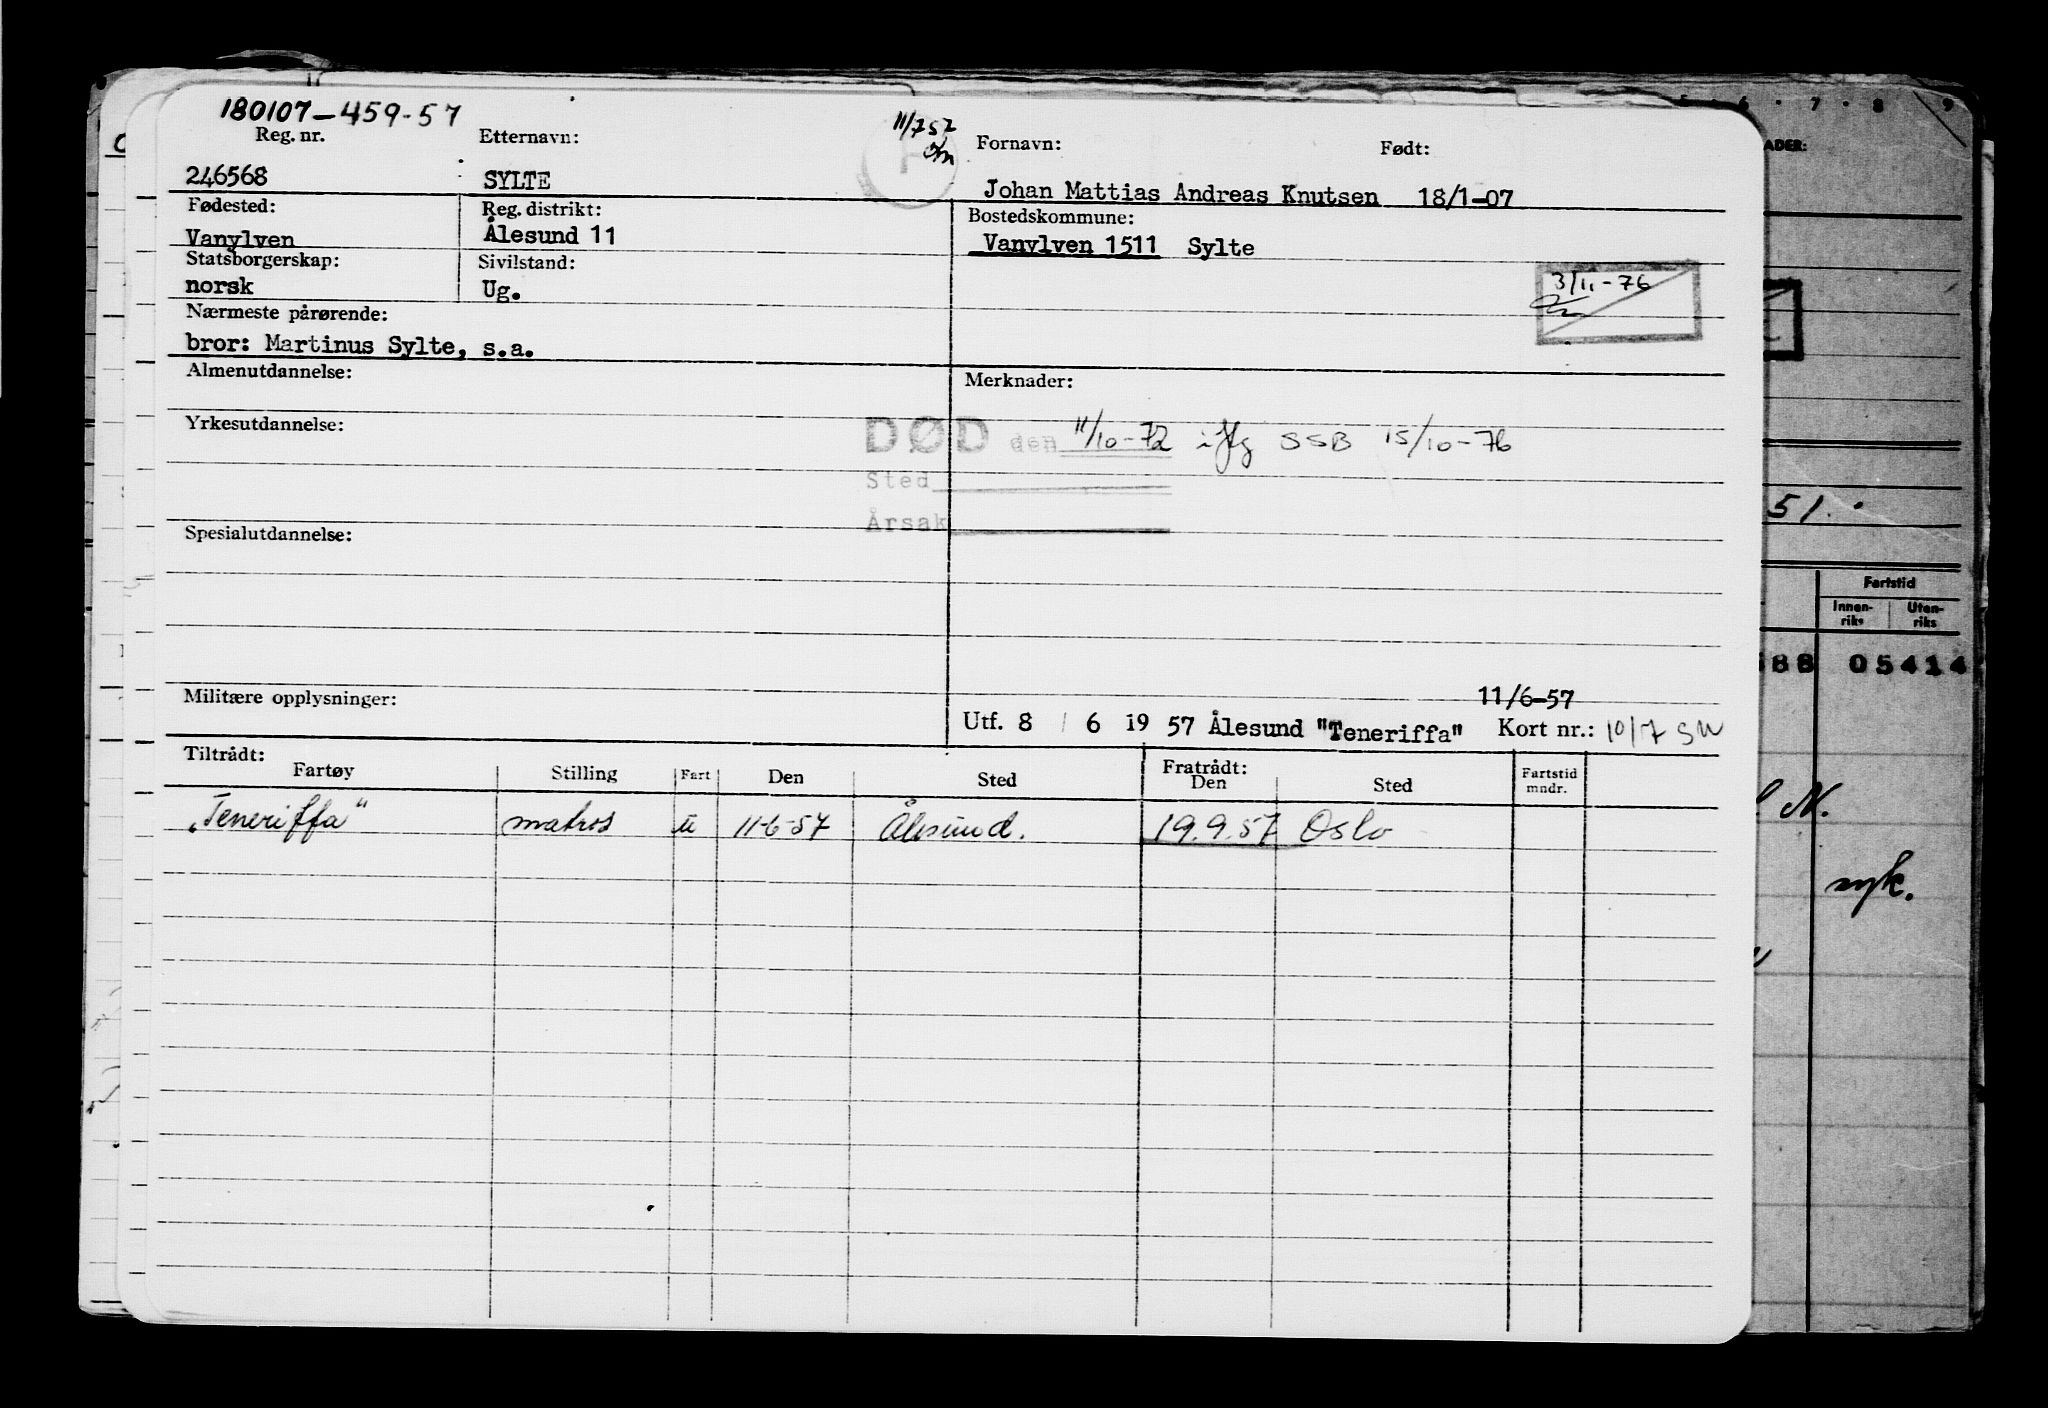 180107-459-57
Reg. nr. Etternavn: 11/7 57 Fornavn: Født:
246568 SYLTE Johan Mattias Andreas Knutsen 18/1-07
Fødested: Reg. distrikt: Bostedskommune:
Vanylven Ålesund 11 Vanylven 1511 Sylte
Statsborgerskap: Sivilstand:
norsk Ug. 3/11-76
Nærmeste pårørende:
bror: Martinus Sylte, s.a.
Almenutdannelse: Merknader:
Yrkesutdannelse: DØD den 11/10-72 iflg SSB 15/10-76
Sted
Årsak
Spesialutdannelse:
Militære opplysninger: 11/6-57
Utf. 8 / 6 19 57 Ålesund "Teneriffa" Kort nr.: 10/7 SW
Tiltrådt: Fratrådt:
Fartøy Stilling Fart Den Sted Den Sted Fartstid mndr.
"Teneriffa" matros u 11-6-57 Ålesund. 19.9.57 Oslo
5 . 6 . 7 . 8 9
ADER:
51.
Fartstid
Innen-riks Uten-riks
88 05414
M.
syk.